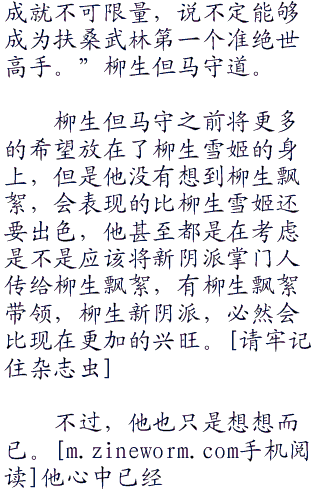 成就不可限量，说不定能够
成为扶桑武林第一个准绝世
高手。” 柳生但马守道。
柳生但马守之前将更多
的希望放在了柳生雪姬的身
上，但是他没有想到柳生飘
絮，会表现的比柳生雪姬还
要出色，他甚至都是在考虑
是不是应该将新阴派掌门人
传给柳生飘絮，有柳生飘絮
带领，柳生新阴派，必然会
比现在更加的兴旺。[请牢记
住杂志虫]
不过，他也只是想想而
已。[m.zineworm.com手机阅
读]他心中已经